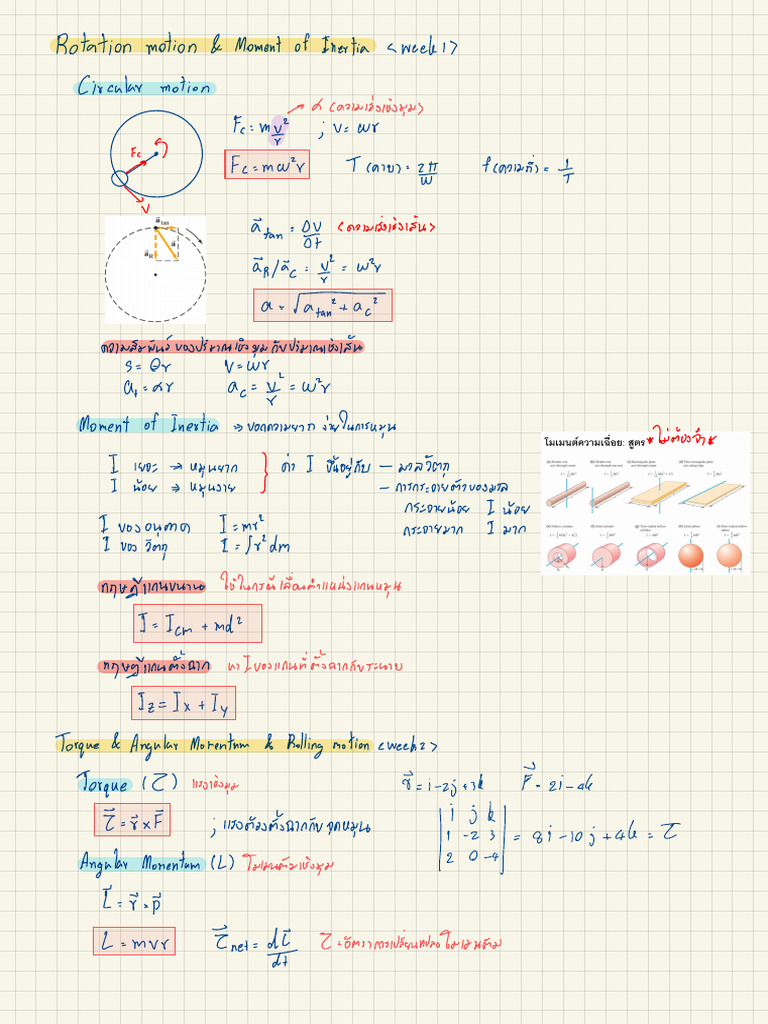 Rotation motion & Moment of Inertia <week1>
Circular motion
α (ความเร่งเชิงมุม)
Fc = m v²/r ; v = ωr
Fc
Fc = mω²r T (คาบ) = 2π/ω f (ความถี่) = 1/T
v
a tan
a
aR
a⃗tan = Δv/Δt (ความเร่งเชิงเส้น)
a⃗R/a⃗c = v²/r = ω²r
a = √(atan² + ac²)
ความสัมพันธ์ของปริมาณเชิงมุมกับปริมาณเชิงเส้น
s = θr v = ωr
at = αr ac = v²/r = ω²r
Moment of Inertia → บอกความยากง่ายในการหมุน
โมเมนต์ความเฉื่อย: สูตร * ไม่ต้องจำ *
I เยอะ → หมุนยาก } ค่า I ขึ้นอยู่กับ – มวลวัตถุ
I น้อย → หมุนง่าย – การกระจายตัวของมวล
กระจายน้อย I น้อย
I ของอนุภาค I = mr² กระจายมาก I มาก
I ของ วัตถุ I = ∫r²dm
ทฤษฎีแกนขนาน ใช้ในกรณีเลื่อนตำแหน่งแกนหมุน
I = Icm + md²
ทฤษฎีแกนตั้งฉาก หา I ของแกนที่ตั้งฉากกับระนาบ
Iz = Ix + Iy
Torque & Angular Momentum & Rolling motion <week2>
Torque (τ) แรงเชิงมุม r⃗ = i-2j+3k F⃗ = 2i-4k
τ⃗ = r⃗ × F⃗ ; แรงต้องตั้งฉากกับจุดหมุน
i j k
1 -2 3 = 8i-10j+4k = τ
2 0 -4
Angular Momentum (L) โมเมนตัมเชิงมุม
L⃗ = r⃗ × p⃗
L = mvr τ⃗net = dL⃗/dt τ = อัตราการเปลี่ยนแปลงโมเมนตัม